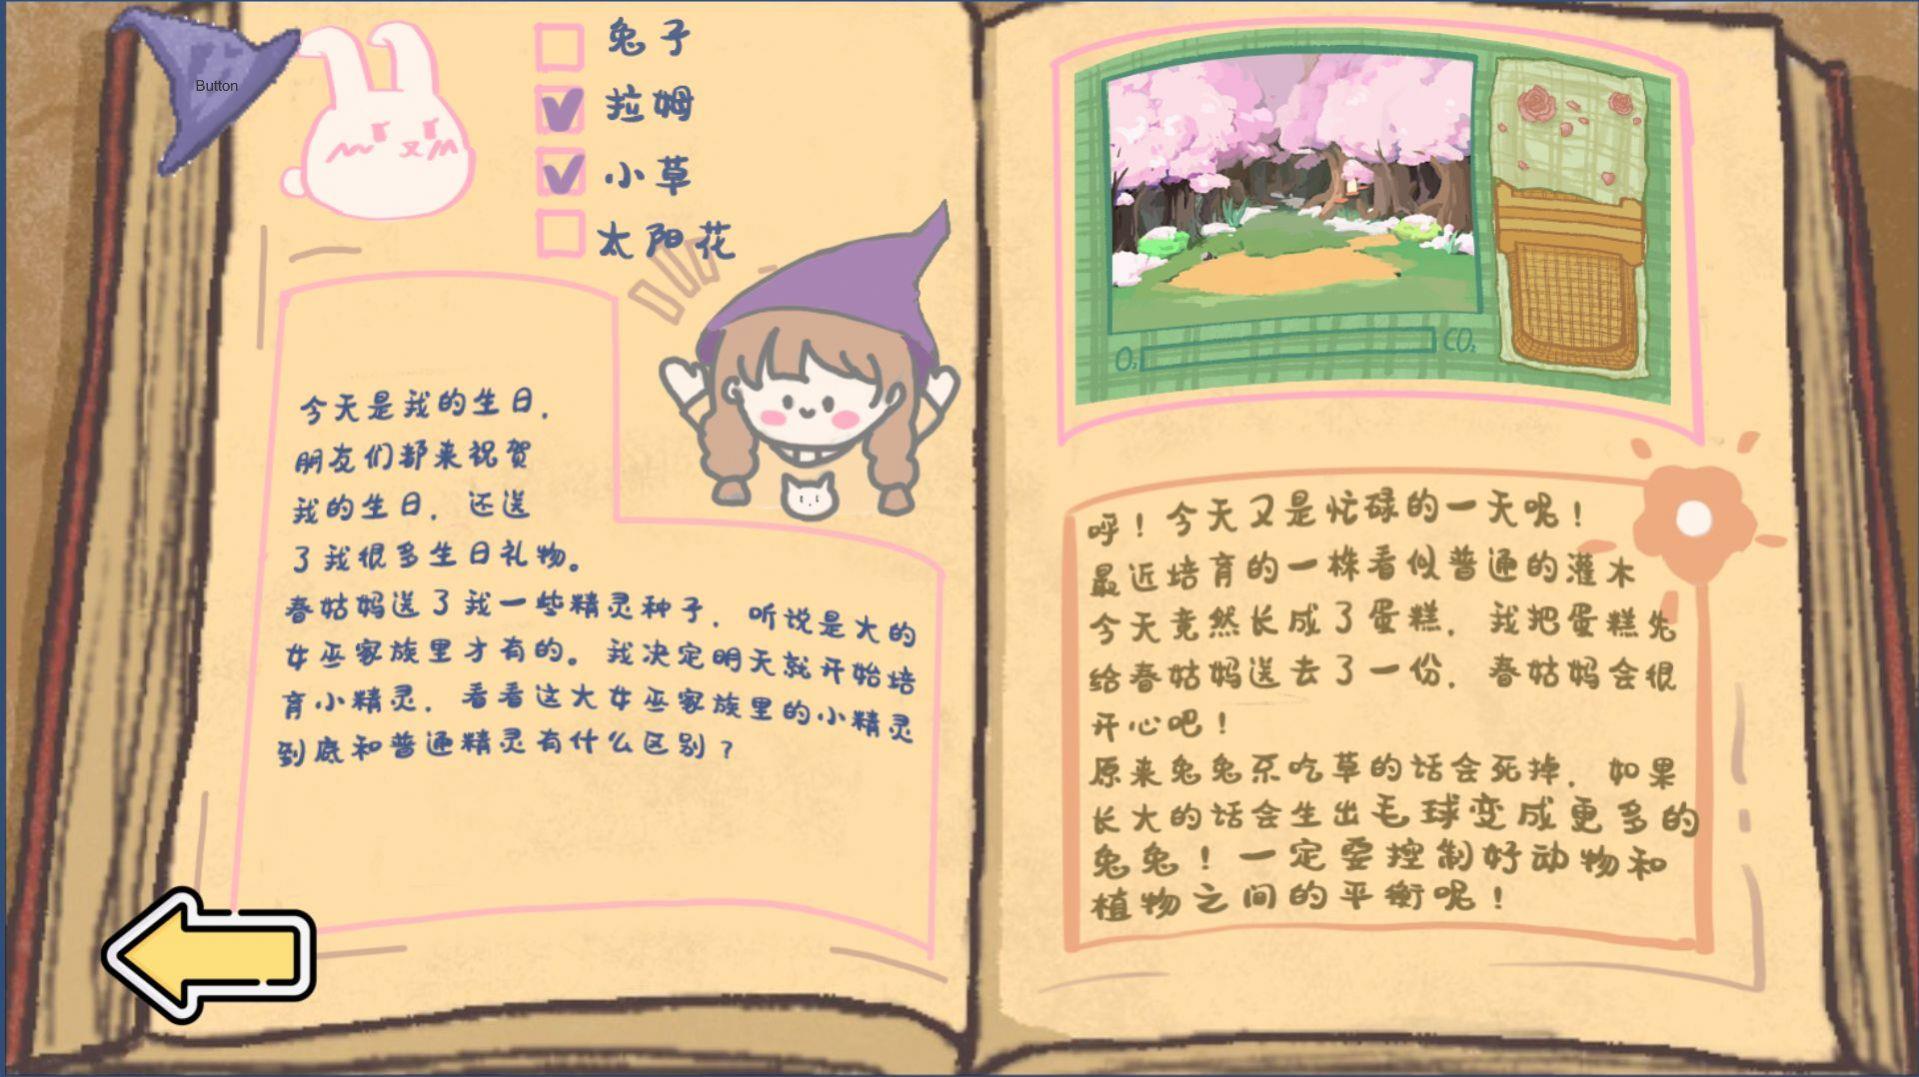 Button
兔子
拉姆
小草
太阳花
今天是我的生日.
朋友们都来祝贺
我的生日. 还送
了我很多生日礼物。
春姑妈送了我一些精灵种子. 听说是大的
女巫家族里才有的。我决定明天就开始培
育小精灵. 看看这大女巫家族里的小精灵
到底和普通精灵有什么区别?
O₂
CO₂
呼!今天又是忙碌的一天呢!
最近培育的一株看似普通的灌木
今天竟然长成了蛋糕. 我把蛋糕先
给春姑妈送去了一份. 春姑妈会很
开心吧!
原来兔兔不吃草的话会死掉. 如果
长大的话会生出毛球变成更多的
兔兔!一定要控制好动物和
植物之间的平衡呢!